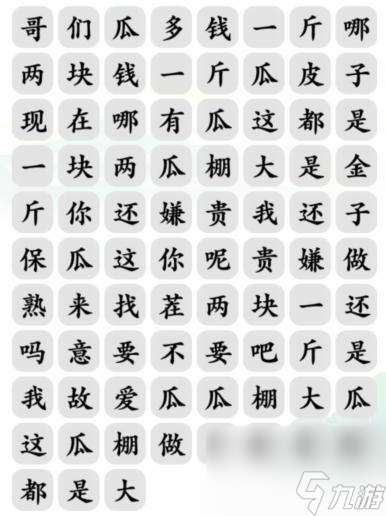 哥们瓜多钱一斤哪
两块钱一斤瓜皮子
现在哪有瓜这都是
一块两瓜棚大是金
斤你还嫌贵我还子
保瓜这你呢贵嫌做
熟来找茬两块一还
吗意要不要吧斤是
我故爱瓜瓜棚大瓜
这瓜棚做
都是大
九游